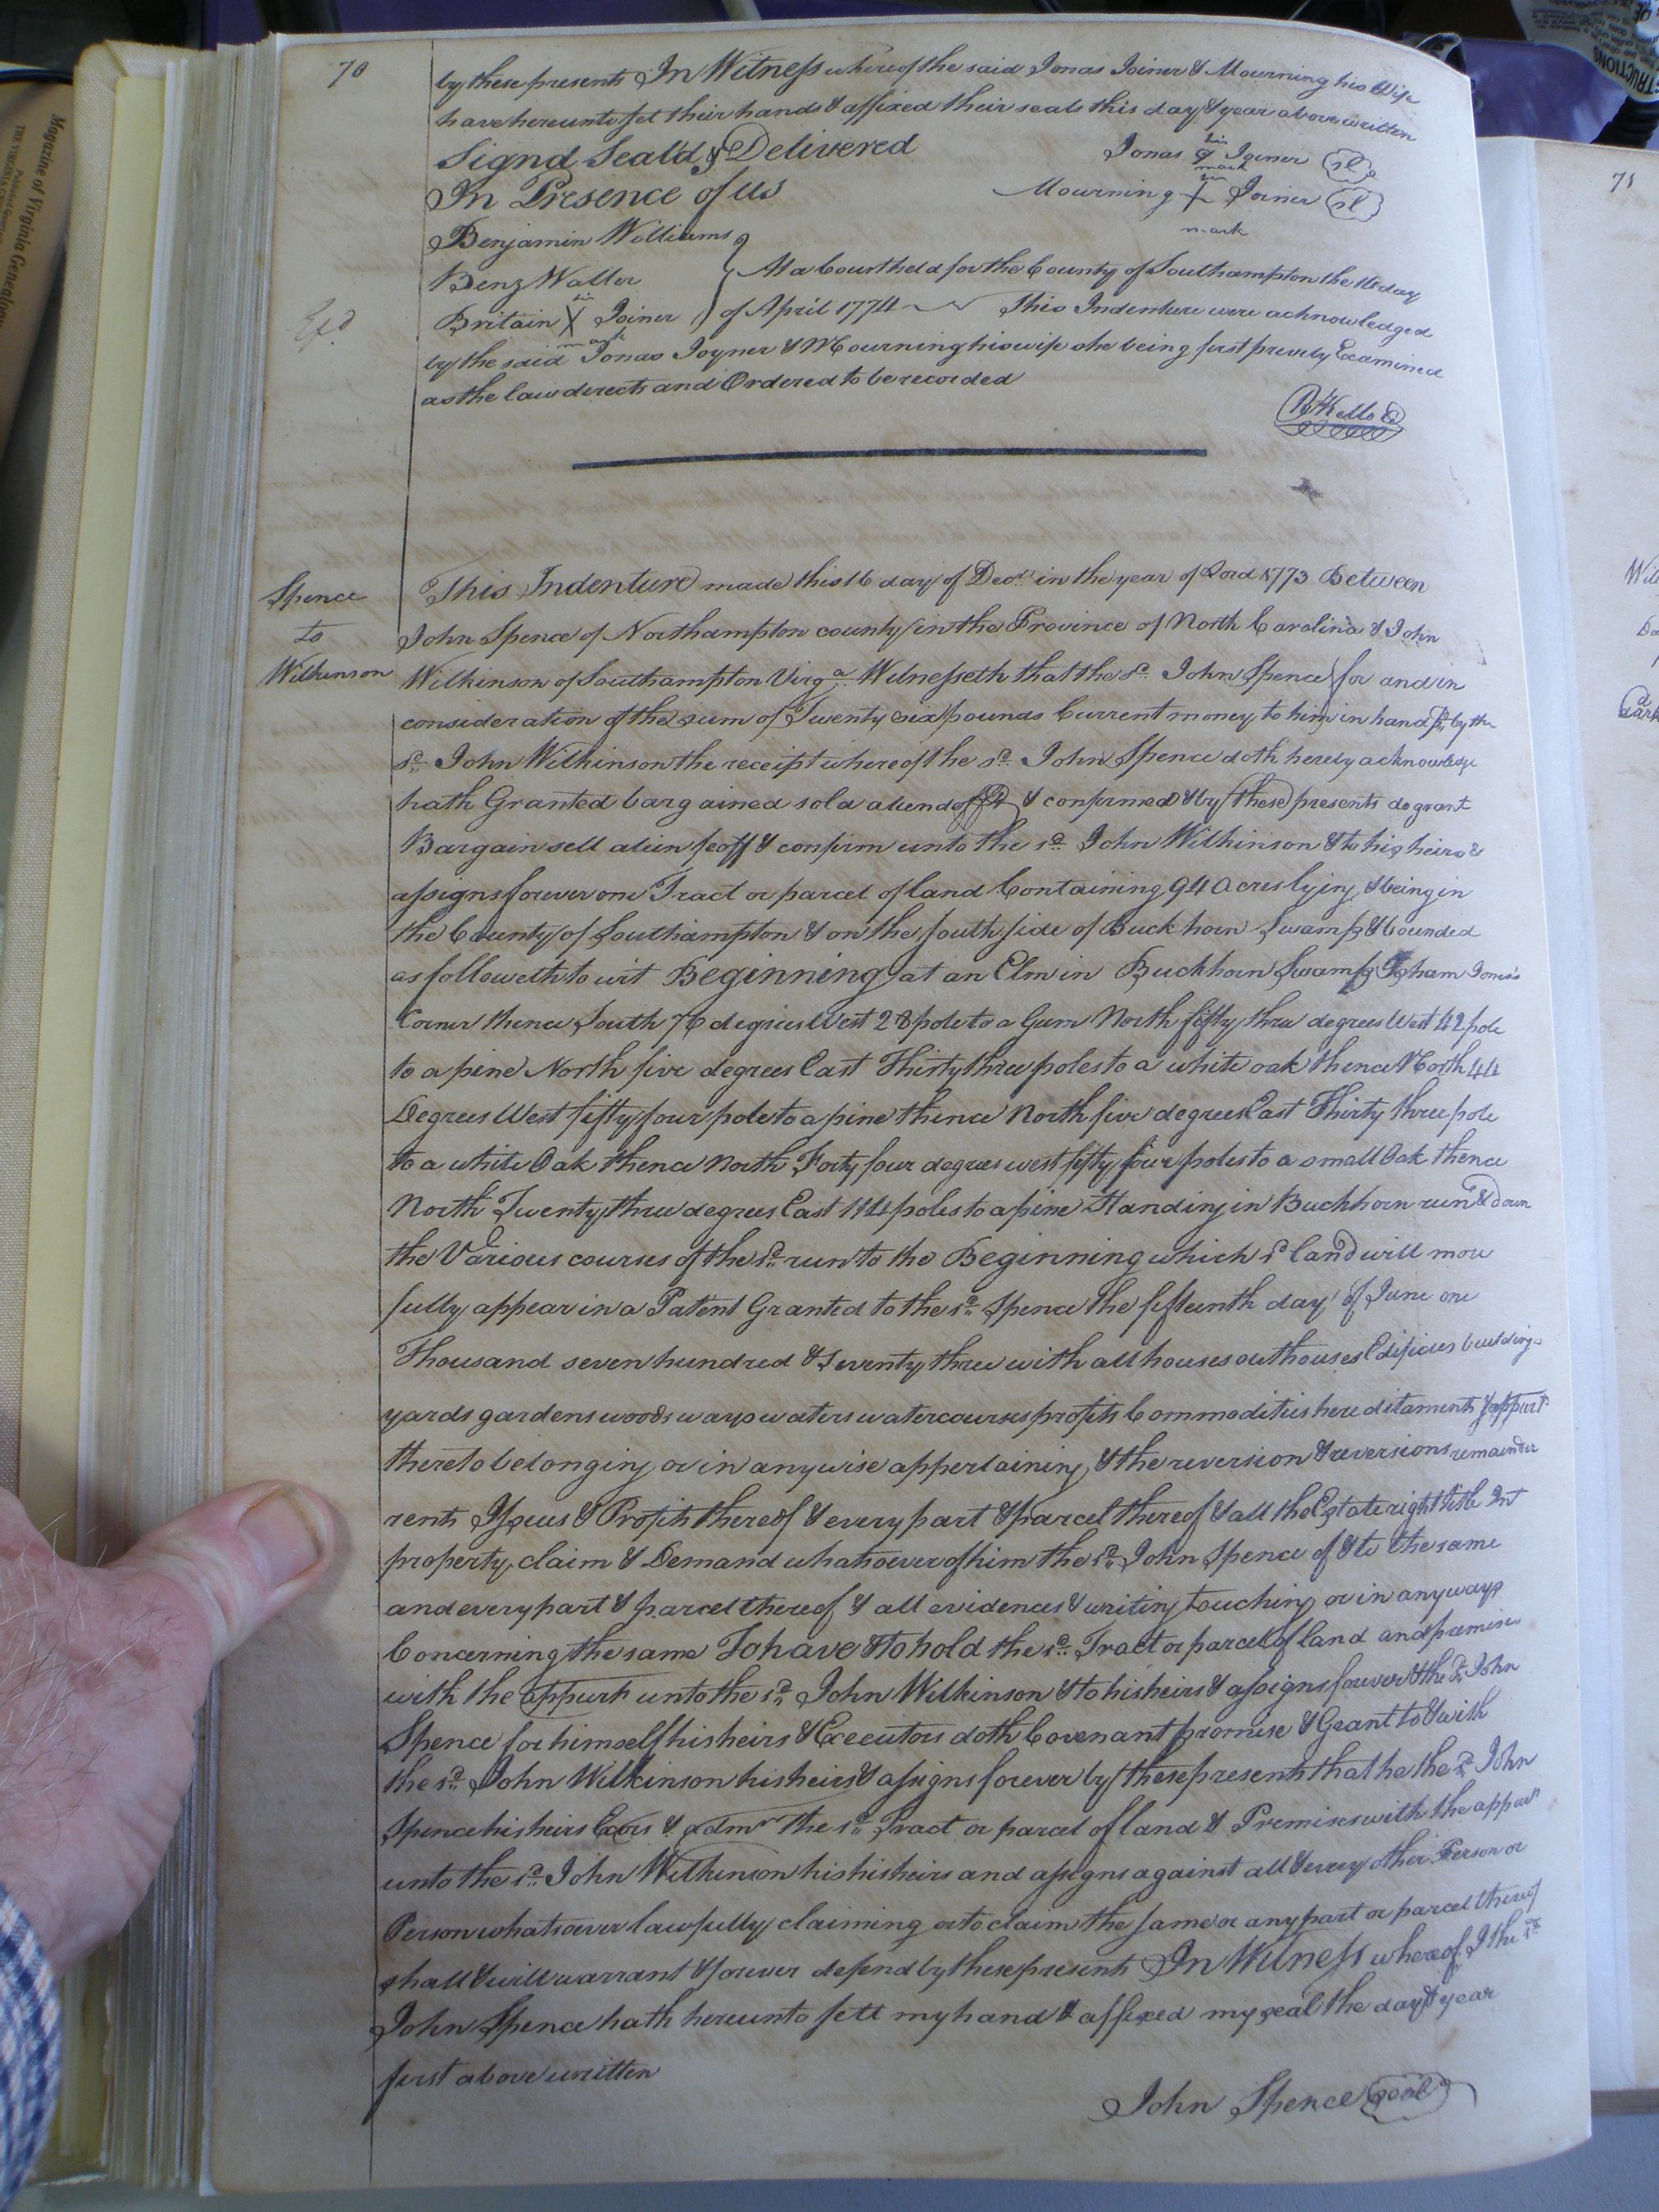 70
by these presents In Witness whereof the said Jonas Joiner & Mourning his Wife
have hereunto set their hands & affixed their seals this day & year above written
Signd Seald & Delivered
In Presence of us
Jonas his mark Joiner sl
Mourning her mark Joiner sl
Benjamin Williams
Benj Waller
Britain his X mark Joiner
At a Court held for the County of Southampton the day
of April 1774 This Indenture were acknowledged
by the said Jonas Joyner & Mourning his wife she being first privily Examined
as the law directs and Ordered to be recorded
Exd
Spence
to
Wilkinson
This Indenture made this 16 day of Decr in the year of Lord 1773 Between
John Spence of Northampton county in the Province of North Carolina & John
Wilkinson of Southampton Virga Witnesseth that the sd John Spence for and in
consideration of the sum of Twenty six pounds Current money to him in hand pd by the
sd John Wilkinson the receipt whereof the sd John Spence doth hereby acknowledge
hath Granted bargained sold aliend & confirmed & by these presents do grant
Bargain sell alien feoff & confirm unto the sd John Wilkinson & to his heirs &
assigns forever one Tract or parcel of land Containing 94 acres lying & being in
the County of Southampton & on the south side of Buck horn Swamp & bounded
as followeth to wit Beginning at an Elm in Buckhorn Swamp Jones's
Corner thence South 76 degrees West 28 pole to a Gum North fifty three degrees West 42 pole
to a pine North five degrees East Thirty three poles to a white oak thence North 44
Degrees West fifty four pole to a pine thence North five degrees East Thirty three pole
to a white Oak thence North Forty four degrees west fifty four poles to a small Oak thence
North Twenty three degrees East 114 poles to a pine Standing in Buckhorn run & down
the Various courses of the sd run to the Beginning which sd land will more
fully appear in a Patent Granted to the sd Spence the fifteenth day of June one
Thousand seven hundred & Seventy three with all houses outhouses Edifices buildings
yards gardens woods ways waters watercourses profits Commodities hereditaments & appurts
thereto belonging or in anywise appertaining & the reversion & reversions remainder
rents Issues & Profits thereof & every part & parcel thereof & all the Estate right title Int
property claim & Demand whatsoever of him the sd John Spence of & to the same
and every part & parcel thereof & all evidences & writing touching or in anyways
Concerning the same To have & to hold the sd Tract or parcel of land and premises
with the appurts unto the sd John Wilkinson & to his heirs & assigns forever & the sd John
Spence for himself his heirs & Executors doth Covenant promise & Grant to & with
the sd John Wilkinson his heirs & assigns forever by these presents that he the sd John
Spence his heirs Exors & admrs the sd Tract or parcel of land & Premises with the appurts
unto the sd John Wilkinson his his heirs and assigns against all & every other Person or
Person whatsoever lawfully claiming or to claim the same or any part or parcel thereof
shall & will warrant & forever defend by these presents In Witness whereof I the sd
John Spence hath hereunto sett my hand & affixed my seal the day & year
first above written
John Spence seal
71
Magazine of Virginia Genealogy